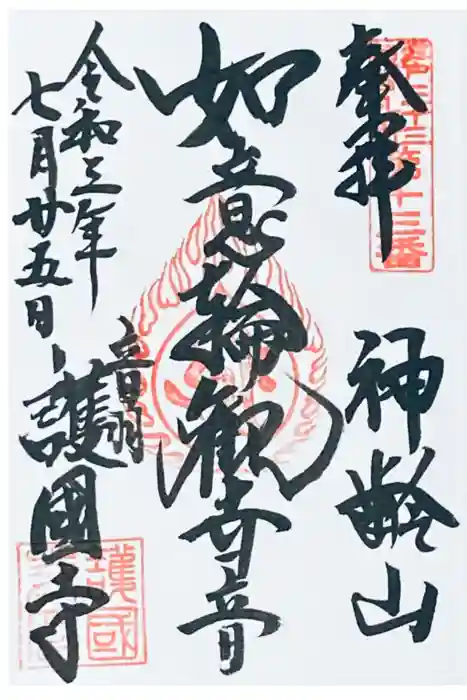 奉拝
神齢山
如意輪観世音
令和三年
七月廿五日
音羽
護國寺
十三番
護國